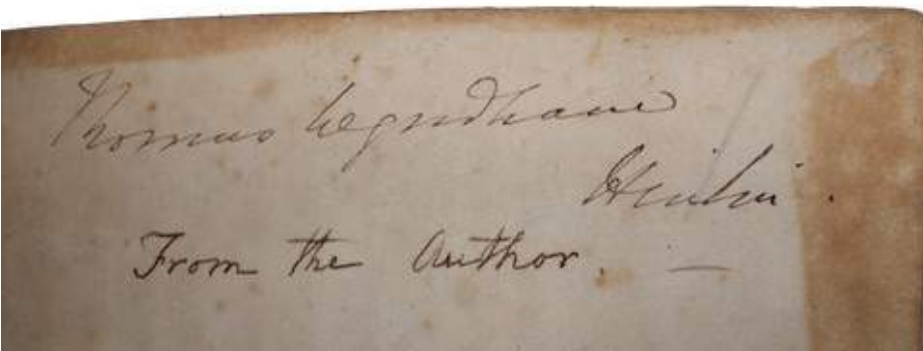 Thomas Wyndham
From the Author. —